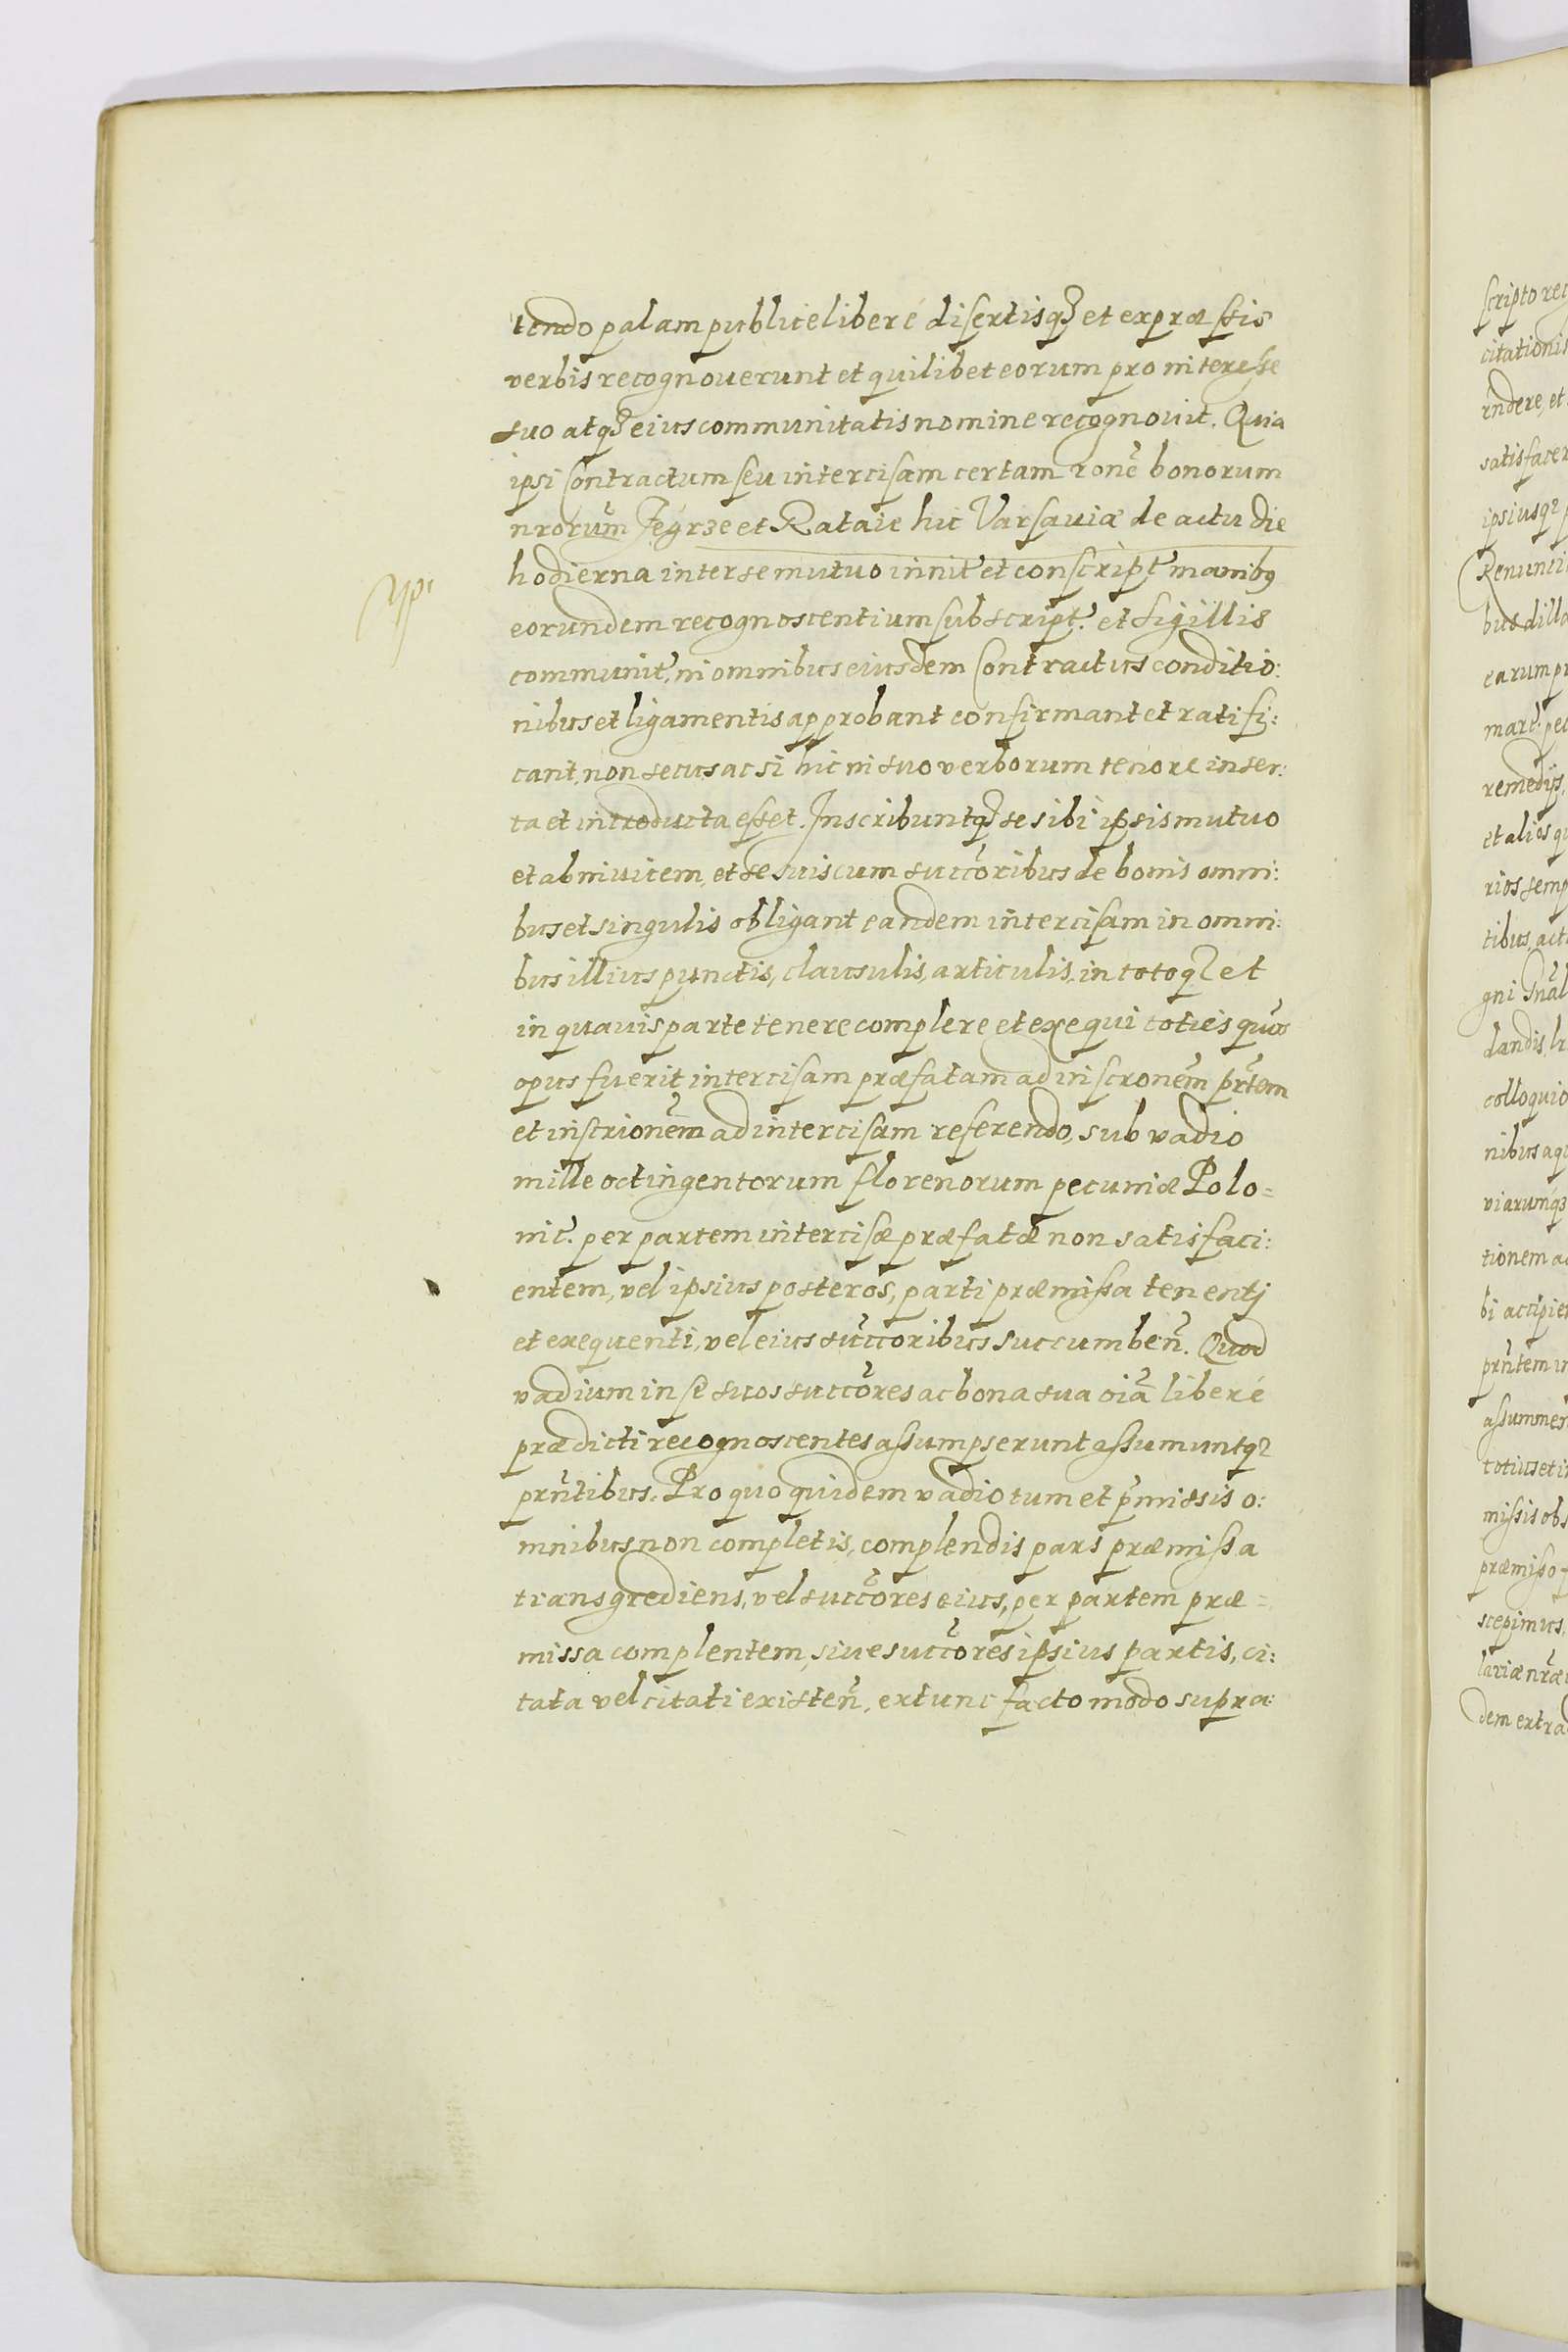 tendo palam publice libere disertisq₃ et expræssis
verbis recognouerunt et quilibet eorum pro interesse
suo atq₃ eius communitatis nomine recognouit. Quia
ipsi Contractum seu intercisam certam rone bonorum
nrorum Jegrze et Rataie hic Varsauiæ de actu die
hodierna inter se mutuo innit. et conscript. manibq
eorundem recognoscentium subscript. et sigillis
communit. in omnibus eiusdem Contractus conditio:
nibus et ligamentis approbant confirmant et ratifi:
cant, non secus ac si hic in suo verborum tenore inser:
ta et introducta esset. Inscribuntq₃ se sibi ipsis mutuo
et ab inuicem, et se suis cum succoribus de bonis omni:
bus et singulis obligant eandem intercisam in omni:
bus illius punctis, clausulis, articulis, in totoq₃ et
in quauis parte tenere complere et exequi toties quos
opus fuerit intercisam præfatam ad inscronem prtem
et inscrionem ad intercisam referendo, sub vadio
mille octingentorum florenorum pecuniæ Polo=
nic. per partem intercisæ præfatæ non satisfaci:
entem, vel ipsius posteros, parti præmissa tenentj
et exequenti, vel eius succoribus succumben. Quod
vadium in se suos succores ac bona sua oia libere
prædicti recognoscentes assumpserunt assumuntq₃
prntibus. Pro quo quidem vadio tum et pmissis o:
mnibus non completis, complendis pars præmissa
transgrediens, vel succores eius, per partem præ=
missa complentem, siue succores ipsius partis, ci:
tata vel citati existen. extunc facto modo supra:
scripto re
citationis
rndere, et
satisfacer
ipsiusq₃ p
Renuncii
bus dilla
earum pr
mart. pec
remedijs,
et alios qu
rios semp
tibus, act
gni Gnal
landis, li
colloquio
nibus aqu
viarumq₃
tionem ac
bi accipien
prntem in
assummen
totius et in
missis obs
præmisso
scepimus,
lariæ nræ
dem extrad